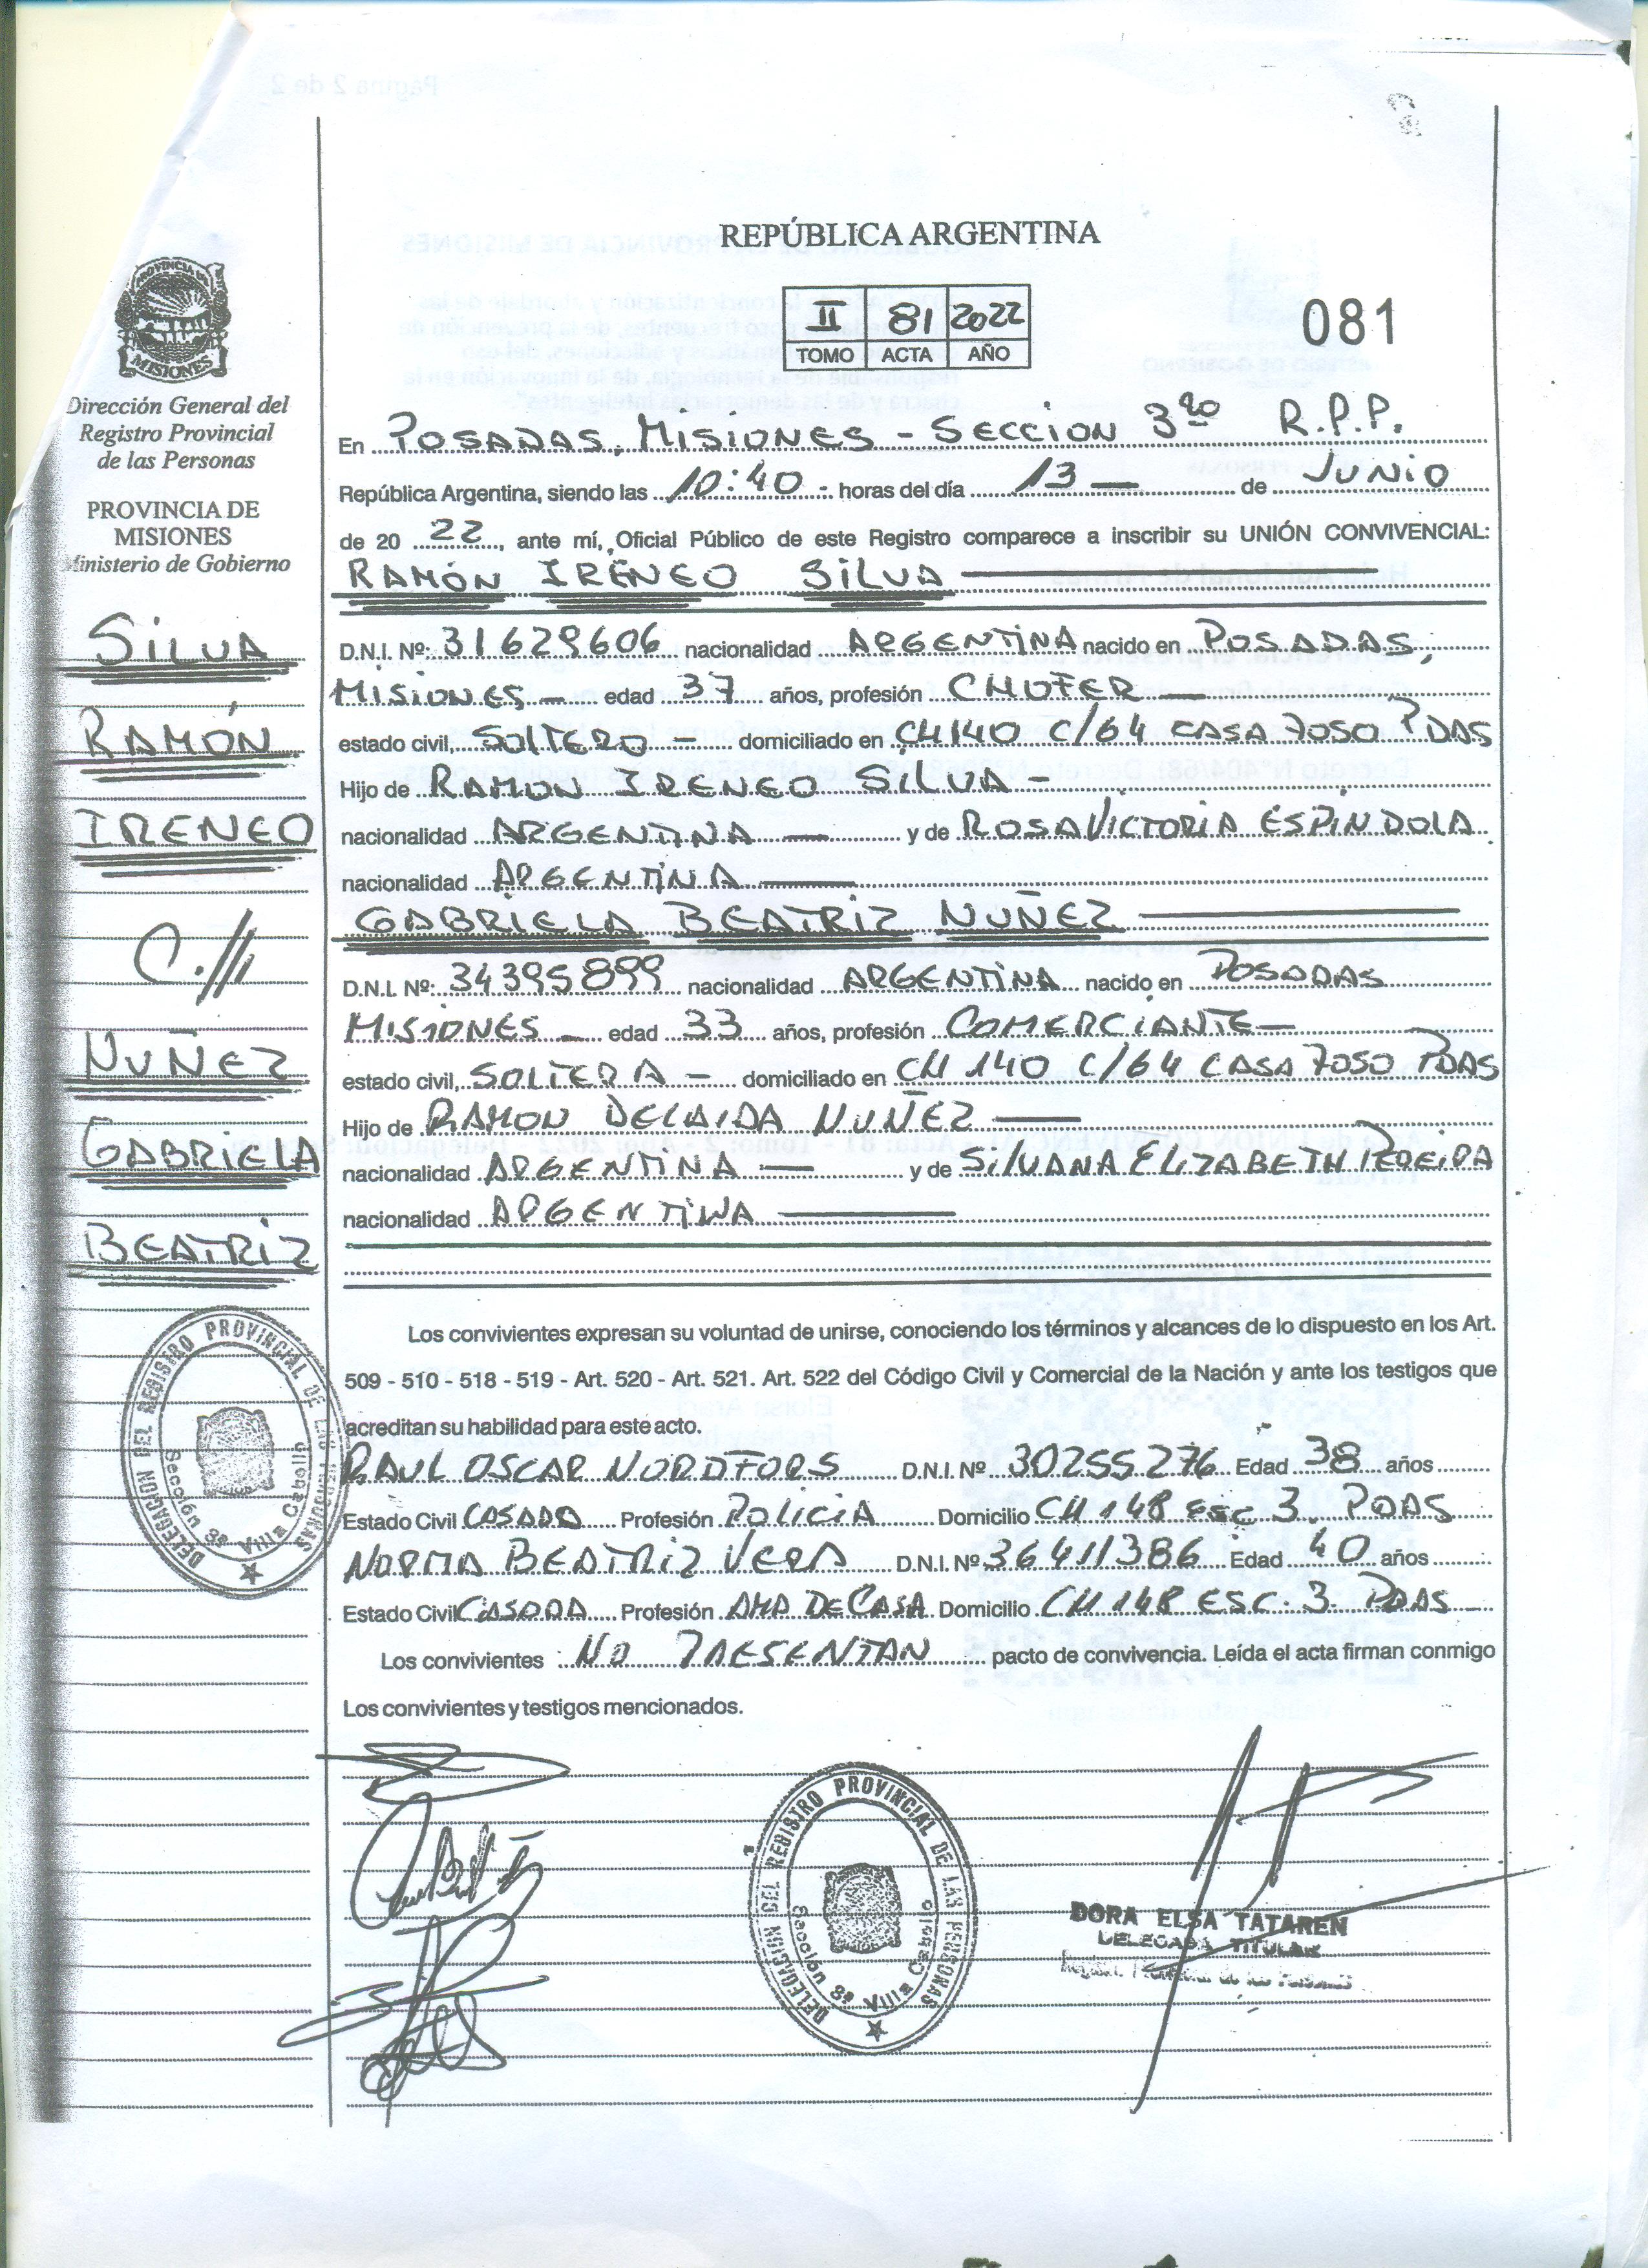 REPÚBLICA ARGENTINA
II 81 2022
TOMO ACTA AÑO
081
PROVINCIA DE
MISIONES
Dirección General del
Registro Provincial
de las Personas
PROVINCIA DE
MISIONES
Ministerio de Gobierno
SILVA
RAMÓN
IRENEO
C.//
NUÑEZ
GABRIELA
BEATRIZ
DELEGACION DEL REGISTRO PROVINCIAL DE LAS PERSONAS
Sección 3ª Villa Cabello
En POSADAS, MISIONES - SECCION 3ra R.P.P.
República Argentina, siendo las 10:40 - horas del día 13 — de JUNIO
de 20 22, ante mí, Oficial Público de este Registro comparece a inscribir su UNIÓN CONVIVENCIAL:
RAMÓN IRENEO SILVA
D.N.I. Nº: 31629606 nacionalidad ARGENTINA nacido en POSADAS,
MISIONES — edad 37 años, profesión CHOFER —
estado civil, SOLTERO — domiciliado en CH 140 C/64 CASA 7050 PDAS
Hijo de RAMON IRENEO SILVA —
nacionalidad ARGENTINA — y de ROSA VICTORIA ESPINDOLA
nacionalidad ARGENTINA —
GABRIELA BEATRIZ NUÑEZ
D.N.I. Nº: 34395899 nacionalidad ARGENTINA nacido en POSADAS
MISIONES — edad 33 años, profesión COMERCIANTE —
estado civil, SOLTERA — domiciliado en CH 140 C/64 CASA 7050 PDAS
Hijo de RAMON DELAIDA NUÑEZ —
nacionalidad ARGENTINA — y de SILVANA ELIZABETH PEREIRA
nacionalidad ARGENTINA —
Los convivientes expresan su voluntad de unirse, conociendo los términos y alcances de lo dispuesto en los Art.
509 - 510 - 518 - 519 - Art. 520 - Art. 521. Art. 522 del Código Civil y Comercial de la Nación y ante los testigos que
acreditan su habilidad para este acto.
RAUL OSCAR NORDFORS D.N.I. Nº 30255276 Edad 38 años
Estado Civil CASADO Profesión POLICIA Domicilio CH 148 ESC 3. PDAS
NORMA BEATRIZ VERA D.N.I. Nº 36411386 Edad 40 años
Estado Civil CASADA Profesión AMA DE CASA Domicilio CH 148 ESC. 3. PDAS
Los convivientes NO PRESENTAN pacto de convivencia. Leída el acta firman conmigo
Los convivientes y testigos mencionados.
DELEGACION DEL REGISTRO PROVINCIAL DE LAS PERSONAS
Sección 3ª Villa Cabello
DORA ELSA TATAREN
DELEGADA TITULAR
Registro Provincial de las Personas